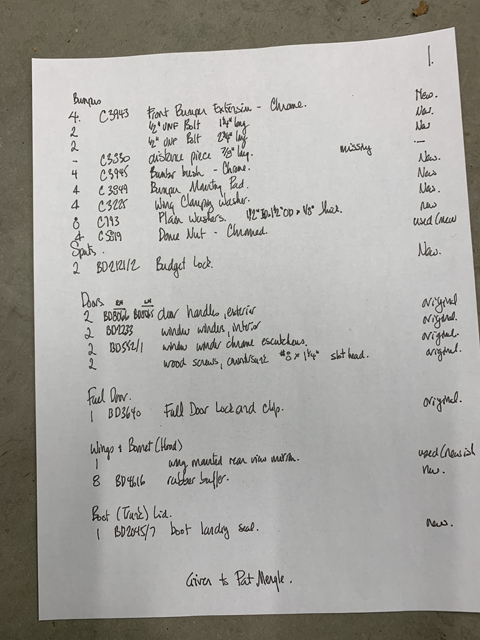 1.
Bumpers
4. C3943 Front Bumper Extension - Chrome. New.
2 1/2" UNF Bolt 1 1/4" long New
2 1/2" UNF Bolt 2 3/4" long New
- C3330 distance piece 7/8" long. missing -
4 C3945 bush - Chrome. New.
4 C3849 Bumper Mounting Pad. New
4 C3225 Wing Clamping Washer. New.
8 C793 Plain Washers. 1/2" ID x 1 1/2" OD x 1/8" thick. new
4 C5819 Dome Nut - Chromed. used/new
Spats.
2 BD2121/2 Budget Lock. New.
Doors RH LH
2 door handles, exterior original
2 BD2233 window winders, interior original.
2 BD552/1 window winder chrome escutcheons. original.
2 wood screws, countersunk #8 x 1 1/4" slot head. original.
Fuel Door.
1 BD3640 Fuel Door Lock and clip. original.
Wings & Bonnet (Hood)
1 wing mounted rear view mirror. used/newish
8 BD4616 rubber buffer. new.
Boot (Trunk) Lid.
1 BD2045/7 boot landing seal. new.
Given to Pat Mengle.